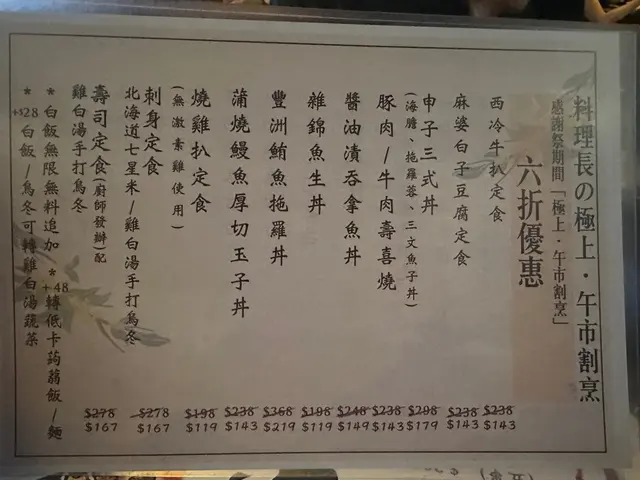 料理長の極上・午市割烹
感謝祭期間「極上・午市割烹」
六折優惠
西冷牛扒定食
$238
$143
麻婆白子豆腐定食
$238
$143
申子三式丼
(海膽、拖羅蓉、三文魚子丼)
$298
$179
豚肉/牛肉壽喜燒
$238
$143
醬油漬吞拿魚丼
$248
$149
雜錦魚生丼
$198
$119
豐洲鮪魚拖羅丼
$368
$219
蒲燒鰻魚厚切玉子丼
$238
$143
燒雞扒定食
(無激素雞使用)
$198
$119
刺身定食
北海道七星米/雞白湯手打烏冬
$278
$167
壽司定食(廚師發辦)配
雞白湯手打烏冬
$278
$167
*白飯無限無料追加 *+48轉低卡蒟蒻飯/麵
*+$28白飯/烏冬可轉雞白湯蔬菜